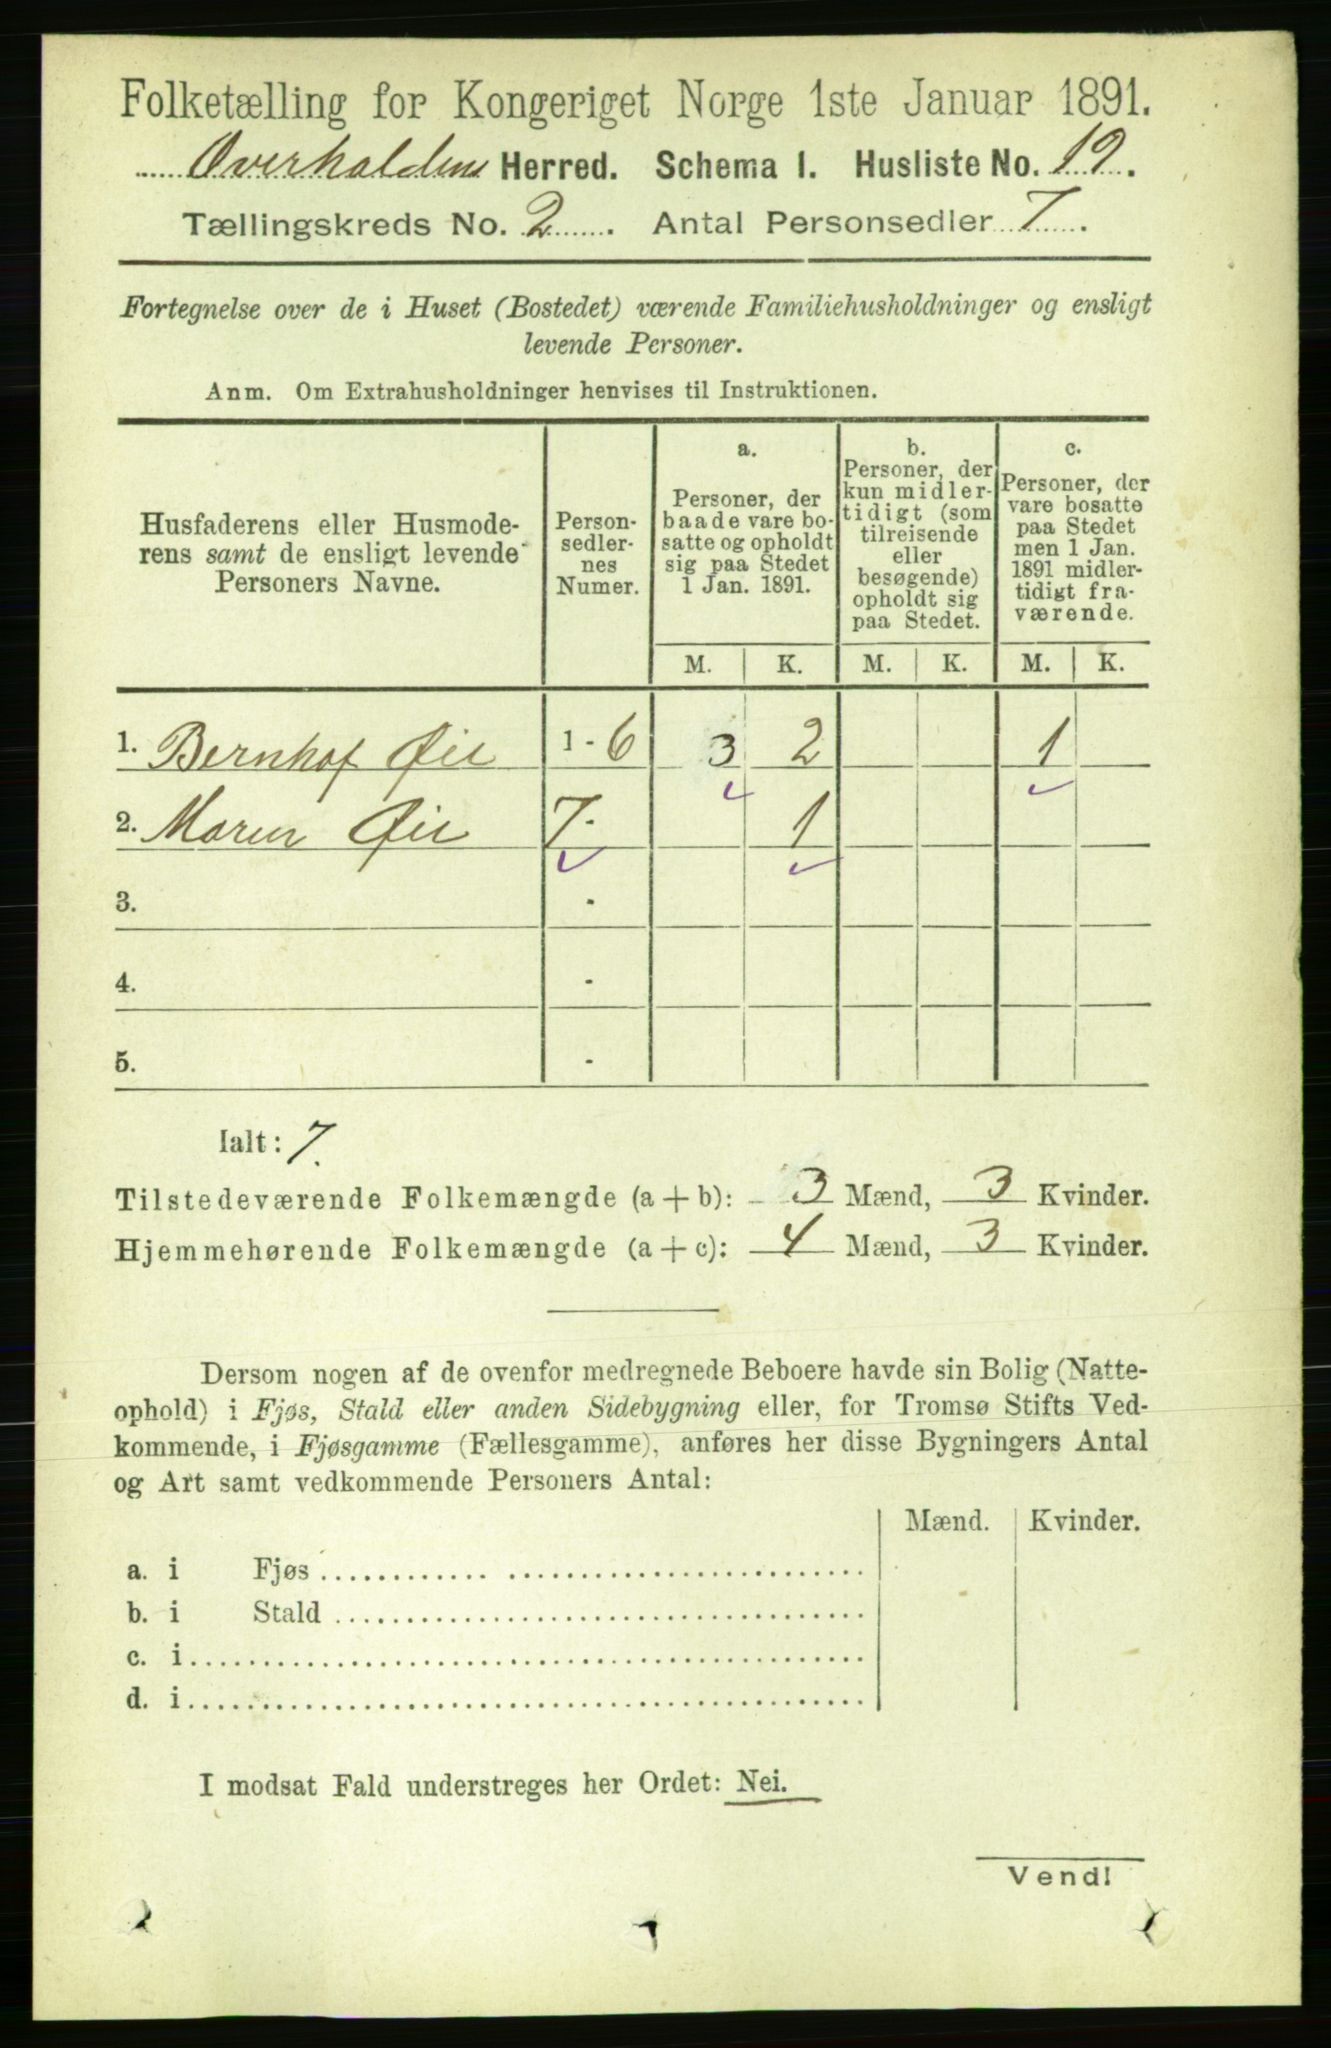 Folketælling for Kongeriget Norge 1ste Januar 1891.
Overhaldens Herred. Schema I. Husliste No. 19.
Tællingskreds No. 2. Antal Personsedler 7.
Fortegnelse over de i Huset (Bostedet) værende Familiehusholdninger og ensligt
levende Personer.
Anm. Om Extrahusholdninger henvises til Instruktionen.
Husfaderens eller Husmode-
rens samt de ensligt levende
Personers Navne.
Person-
sedler-
nes
Numer.
a.
Personer, der
baade vare bo-
satte og opholdt
sig paa Stedet
1 Jan. 1891.
b.
Personer, der
kun midler-
tidigt (som
tilreisende
eller
besøgende)
opholdt sig
paa Stedet.
c.
Personer, der
vare bosatte
paa Stedet
men 1 Jan.
1891 midler-
tidigt fra-
værende.
M. K. M. K. M. K.
1. Bernhof Øie 1 - 6 3 2 1
2. Maren Øie 7 - 1
3. -
4. -
5. -
Ialt: 7.
Tilstedeværende Folkemængde (a + b): 3 Mænd, 3 Kvinder.
Hjemmehørende Folkemængde (a + c): 4 Mænd, 3 Kvinder.
Dersom nogen af de ovenfor medregnede Beboere havde sin Bolig (Natte-
ophold) i Fjøs, Stald eller anden Sidebygning eller, for Tromsø Stifts Ved-
kommende, i Fjøsgamme (Fællesgamme), anføres her disse Bygningers Antal
og Art samt vedkommende Personers Antal:
Mænd. Kvinder.
a. i Fjøs
b. i Stald
c. i
d. i
I modsat Fald understreges her Ordet: Nei.
Vend!